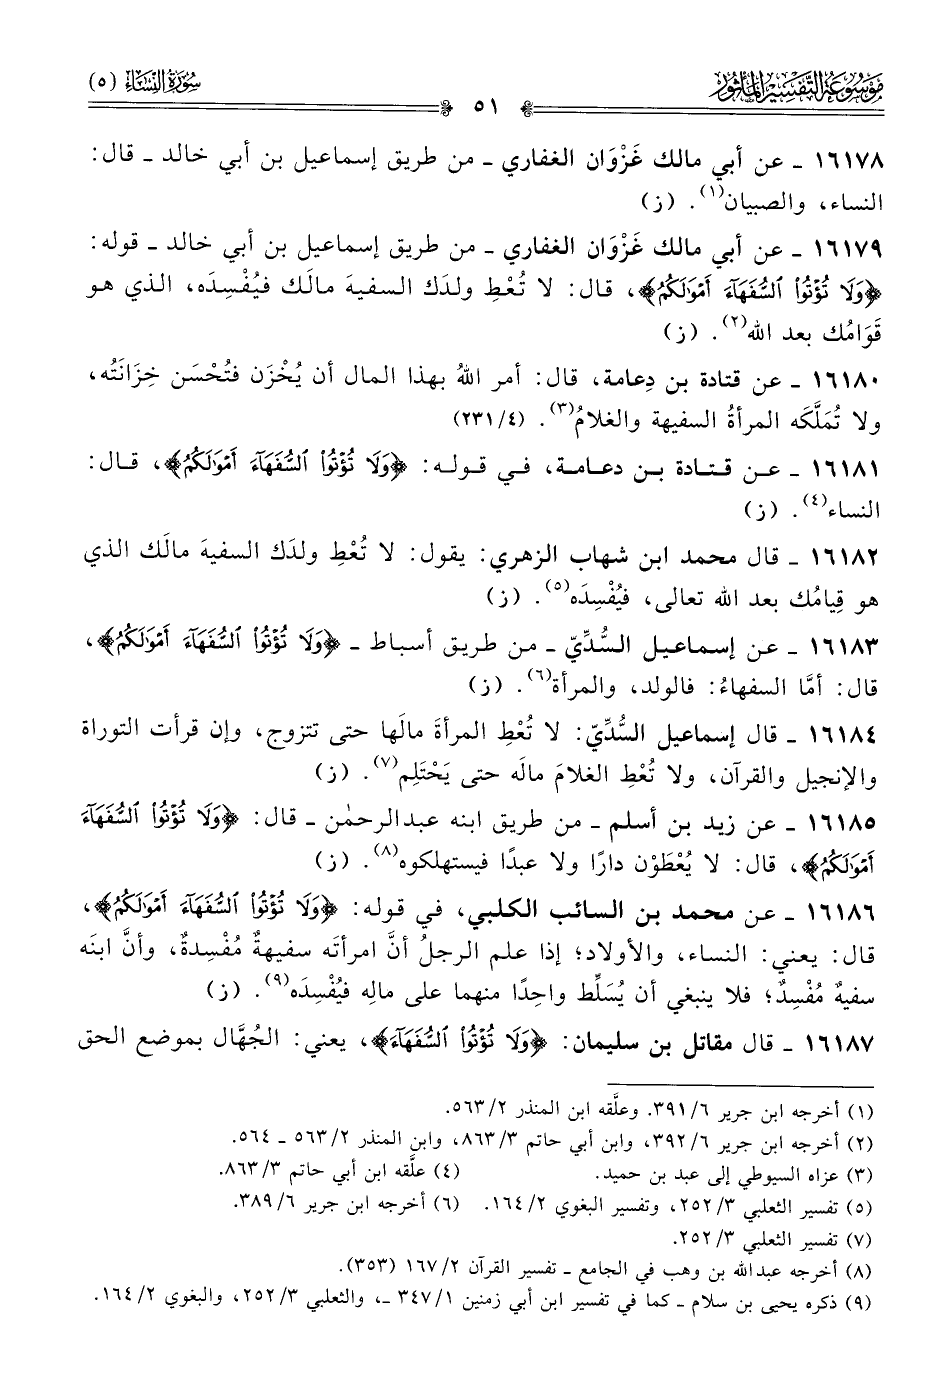 مَوْسُوعَة التَّفْسِيرِ المَأْثُور
سُورَةُ النِّسَاء (٥)
٥١
١٦١٧٨ ـ عن أبي مالك غَزْوَان الغفاري ـ من طريق إسماعيل بن أبي خالد ـ قال:
النساء، والصبيان(١). (ز)
١٦١٧٩ ـ عن أبي مالك غَزْوَان الغفاري ـ من طريق إسماعيل بن أبي خالد ـ قوله:
﴿وَلَا تُؤْتُوا۟ ٱلسُّفَهَآءَ أَمْوَٰلَكُمُ﴾، قال: لا تُعْطِ ولدَك السفيهَ مالَك فيُفْسِدَه، الذي هو
قَوَامُك بعد الله(٢). (ز)
١٦١٨٠ ـ عن قتادة بن دِعامة، قال: أمر اللهُ بهذا المال أن يُخْزَن فتُحْسَن خِزَانَتُه،
ولا تُمَلَّكَه المرأةُ السفيهة والغلامُ(٣). (٤/٢٣١)
١٦١٨١ ـ عـن قـتـادة بـن دعـامـة، فـي قـولـه: ﴿وَلَا تُؤْتُوا۟ ٱلسُّفَهَآءَ أَمْوَٰلَكُمُ﴾، قـال:
النساء(٤). (ز)
١٦١٨٢ ـ قال محمد ابن شهاب الزهري: يقول: لا تُعْطِ ولدَك السفيهَ مالَك الذي
هو قِيامُك بعد الله تعالى، فيُفْسِدَه(٥). (ز)
١٦١٨٣ ـ عـن إسـماعيل السُّدِّيِّ ـ مـن طريق أسباط ـ ﴿وَلَا تُؤْتُوا۟ ٱلسُّفَهَآءَ أَمْوَٰلَكُمُ﴾،
قال: أمَّا السفهاءُ: فالولد، والمرأة(٦). (ز)
١٦١٨٤ ـ قال إسماعيل السُّدِّيِّ: لا تُعْطِ المرأةَ مالَها حتى تتزوج، وإن قرأت التوراة
والإنجيل والقرآن، ولا تُعْطِ الغلامَ مالَه حتى يَحْتَلِم(٧). (ز)
١٦١٨٥ ـ عن زيد بن أسلم ـ من طريق ابنه عبدالرحمٰن ـ قال: ﴿وَلَا تُؤْتُوا۟ ٱلسُّفَهَآءَ
أَمْوَٰلَكُمُ﴾، قال: لا يُعْطَوْن دارًا ولا عبدًا فيستهلكوه(٨). (ز)
١٦١٨٦ ـ عن محمد بن السائب الكلبي، في قوله: ﴿وَلَا تُؤْتُوا۟ ٱلسُّفَهَآءَ أَمْوَٰلَكُمُ﴾،
قال: يعني: النساء، والأولاد؛ إذا علم الرجلُ أنَّ امرأتَه سفيهةٌ مُفْسِدةٌ، وأنَّ ابنَه
سفيهٌ مُفْسِدٌ؛ فلا ينبغي أن يُسَلِّط واحدًا منهما على مالِه فيُفْسِدَه(٩). (ز)
١٦١٨٧ ـ قال مقاتل بن سليمان: ﴿وَلَا تُؤْتُوا۟ ٱلسُّفَهَآءَ﴾، يعني: الجُهَّال بموضع الحق
(١) أخرجه ابن جرير ٦/٣٩١. وعلَّقه ابن المنذر ٢/٥٦٣.
(٢) أخرجه ابن جرير ٦/٣٩٢، وابن أبي حاتم ٣/٨٦٣، وابن المنذر ٢/٥٦٣ ـ ٥٦٤.
(٣) عزاه السيوطي إلى عبد بن حميد. (٤) علَّقه ابن أبي حاتم ٣/٨٦٣.
(٥) تفسير الثعلبي ٣/٢٥٢، وتفسير البغوي ٢/١٦٤. (٦) أخرجه ابن جرير ٦/٣٨٩.
(٧) تفسير الثعلبي ٣/٢٥٢.
(٨) أخرجه عبدالله بن وهب في الجامع ـ تفسير القرآن ٢/١٦٧ (٣٥٣).
(٩) ذكره يحيى بن سلام ـ كما في تفسير ابن أبي زمنين ١/٣٤٧ ـ، والثعلبي ٣/٢٥٢، والبغوي ٢/١٦٤.